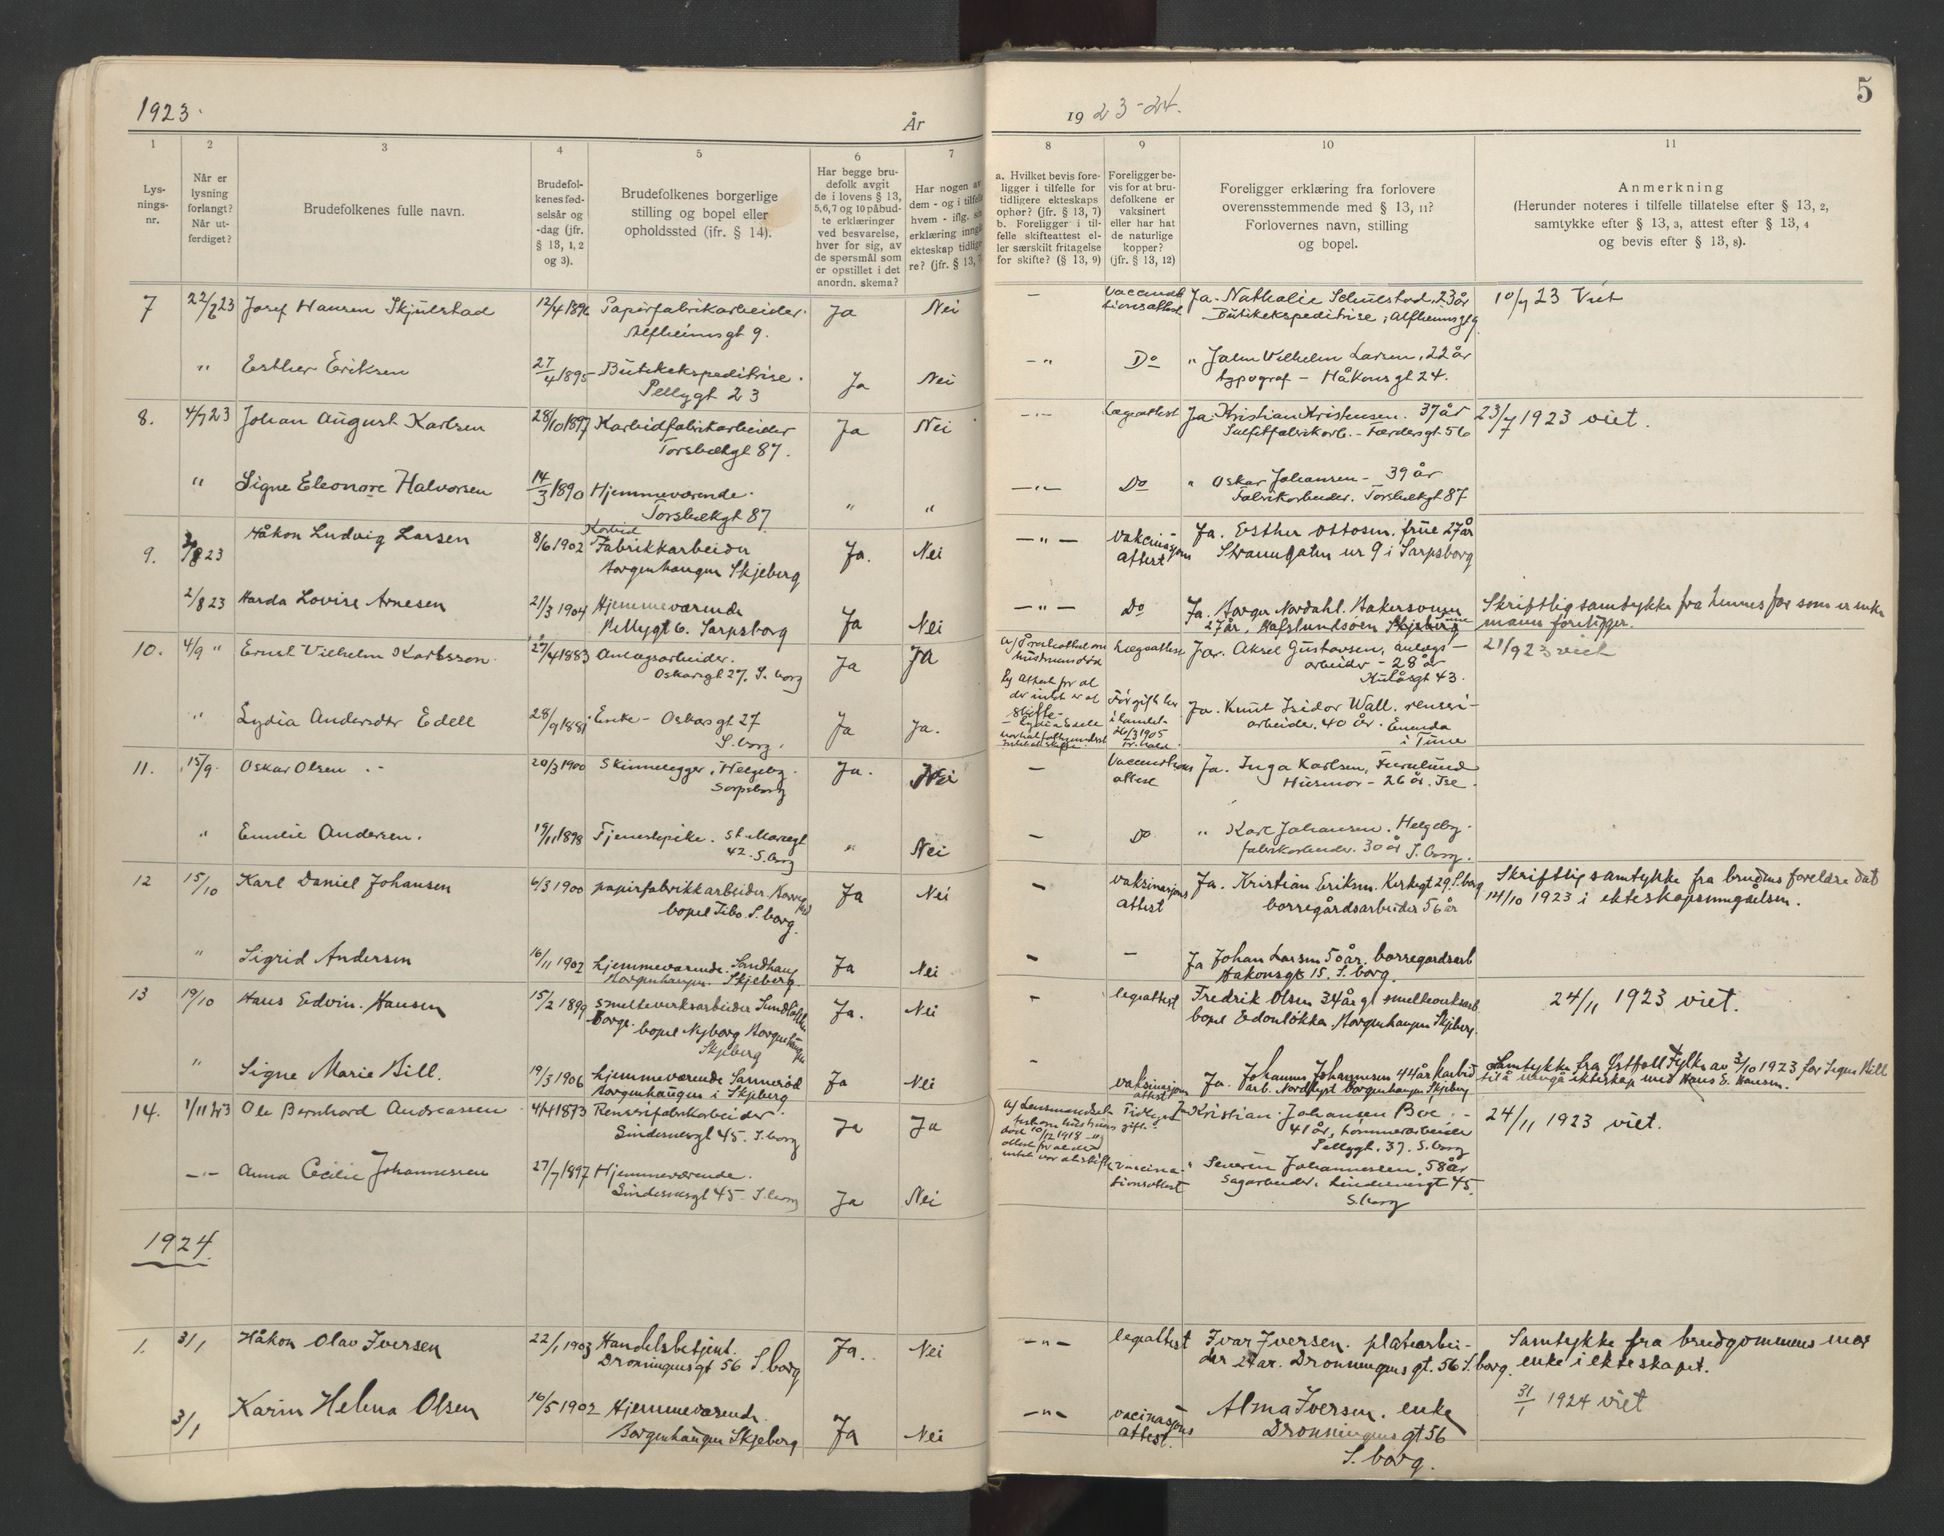 1923.
År
1923-24.
5
1
2
3
4
5
6
7
8
9
10
11
Lysnings-
nr.
Når er
lysning
forlangt?
Når ut-
ferdiget?
Brudefolkenes fulle navn.
Brudefol-
kenes fød-
selsår og
-dag (jfr.
§ 13, 1, 2
og 3).
Brudefolkenes borgerlige
stilling og bopel eller
opholdssted (ifr. § 14).
Har begge bru-
defolk avgit
de i lovens § 13,
5,6,7 og 10 påbud-
te erklæringer
ved besvarelse,
hver for sig, av
de spørsmål som
er opstillet i det
anordn. skema?
Har nogen av
dem - og i tilfelle
hvem - iflg. sin
erklæring inngå
ekteskap tidlige
re? (jfr. § 13, 7
a. Hvilket bevis fore-
ligger i tilfelle for
tidligere ekteskaps
ophør? (jfr. § 13, 7)
b. Foreligger i til-
felle skifteattest el-
ler særskilt fritagelse
for skifte? (§ 13, 9)
Foreligger be-
vis for at bru-
defolkene er
vaksinert
eller har hat
de naturlige
kopper?
(jfr. § 13, 12)
Foreligger erklæring fra forlovere
overensstemmende med § 13, 11?
Forlovernes navn, stilling
og bopel.
Anmerkning
(Herunder noteres i tilfelle tillatelse efter § 13, 2,
samtykke efter § 13, 3, attest efter § 13, 4
og bevis efter § 13, 8).
7 22/6 23 Josef Hansen Skjulstad 12/4 1896 Papirfabrikarbeider. Ja Nei — Ja. Nathalie 23 år 10/7 23 Viet
Alfheimsgt 9. Butikekspeditrise, Alfheimsgt 9.
" Esther Eriksen 27/4 1895 Butikekspeditrise. Ja Nei —"— Do " Vilhelm Larsen, 22 år
Pellygt 23 typograf — Håkonsgt 24.
8. 4/7 23 Johan August Karlsen 28/10 1897 Karbidfabrikarbeider Ja Nei —"— Lægeattest Ja. Kristian Kristensen. 37 år 23/7 1923 viet.
Torsbækgt 87. Sulfitfabrikarb. — Færdersgt. 56
" Signe Eleonore Halvorsen 14/3 1890 Hjemmeværende. " " —"— Do " Oskar Johansen — 39 år
Torsbekgt 87 Fabrikarbeider. Torsbekgt 87
9. 23 Håkon Ludvig Larsen 8/6 1902 Karbid Fabrikkarbeider Ja. Nei —"— vaksinasjons attest Ja. Esther Ottosen, frue 27 år
Borgenhaugen Skjeberg nr 9 i Sarpsborg
2/8 23 Harda Lovise Arnesen 21/3 1904 Hjemmeværende Ja Nei —"— Do Ja. Borger Nordahl. Skriftlig samtykke fra hennes far som er enke
Pellygt 6. Sarpsborg 27 år, Hafslundsøen Skjeberg mann foreligger.
10. 4/9 " Ernst Vilhelm Karlsson. 27/4 1883 Anlægsarbeider. Ja Ja a) Lægeattest Ja. Aksel Gustavsen, anlægs- 21/9 23 viet
Oskarsgt 27, S. borg arbeider — 28 år
Kulåsgt 43.
" Lydia Andersdtr Edell 28/9 1881 Enke — Oskarsgt 27 Ja Ja. Ja. Knut Isidor Wall. renseri-
S. borg. arbeider. 40 år. Enenda
i Tune
11. 15/9 Oskar Olsen 20/3 1900 Skinnelegger, Helgeby. Ja. Nei — Vaccinations attest Ja. Inga Karlsen, Furulund
Sarpsborg Husmor — 26 år.
" Emilie Andersen. 19/11 1898 Tjenestepike. St. Mariegt " Nei — Do " Karl Johansen. Helgeby.
42. S. borg fabrikarbeider. 30 år S. borg.
12 15/10 Karl Daniel Johansen 6/3 1900 papirfabrikkarbeider. Ja Nei — vaksinasjons attest Ja. Kristian Eriksen. Kirkegt 29 S. borg Skriftlig samtykke fra brudens foreldre dat
bopel S. borg. borregårdsarbeider 56 år 14/10 1923 i ekteskapsinngåelsen.
" Sigrid Andersen 16/11 1902 hjemmeværende. Ja Nei — — Ja Johan Larsen 50 år. borregårdsarb
Borgenhaugen. Skjeberg. Hakonsgt 15. S. borg.
13 19/10 Hans Edvin. Hansen 15/2 1899 smelteverksarbeider Ja. Nei — legeattest Fredrik Olsen 34 år gl smelteverksarb 24/11 1923 viet.
Borge. bopel Nyborg Borgenhaugen Skjeberg bopel Edonløkka, Borgenhaugen Skjeberg.
" Signe Marie Bill. 19/3 1906 hjemmeværende Sannerød Ja Nei — vaksinasjons attest Ja. Johannes Johannesen 44 år karbid Samtykke fra Østfold Fylke av 3/10 1923 for Signe Bill
Borgenhaugen i Skjeberg arb. Borgenhaugen Skjeberg til å inngå ekteskap med Hans E. Hansen.
14. 1/11 23 Ole Bernhard Andreassen 4/4 1873 Renserifabrikarbeider. Ja Ja a) Tidligere gift. Ja Kristian. Johansen Boe. — 24/11 1923 viet.
Lindernesgt 45. S. borg 41 år, tømmerarbeider
Pellygt. 37. S. borg
—"— Anna Cecilie Johannessen 27/7 1897 Hjemmeværende. Ja Nei Vaccinationsattest " Severin Johannessen, 58 år
Lindernesgt 45. S. borg Sagarbeider, Lindernesgt 45.
S. borg
1924.
1. 3/1 Håkon Olav Iversen 22/1 1903 Handelsbetjent. Ja. Nei —"— legeattest Ivar Iversen. platearbei- Samtykke fra brudgommens mor
Dronningensgt 56 S. borg der 27 år. Dronningensgt. 56 S. borg. enke i ekteskapet.
3/1 Karin Helena Olsen 16/5 1902 Hjemmeværende. Ja Nei —"— vacinasjons attest. Alma Iversen. enke 31/1 1924 viet
Borgenhaugen Skjeberg Dronningensgt 56
S. borg.